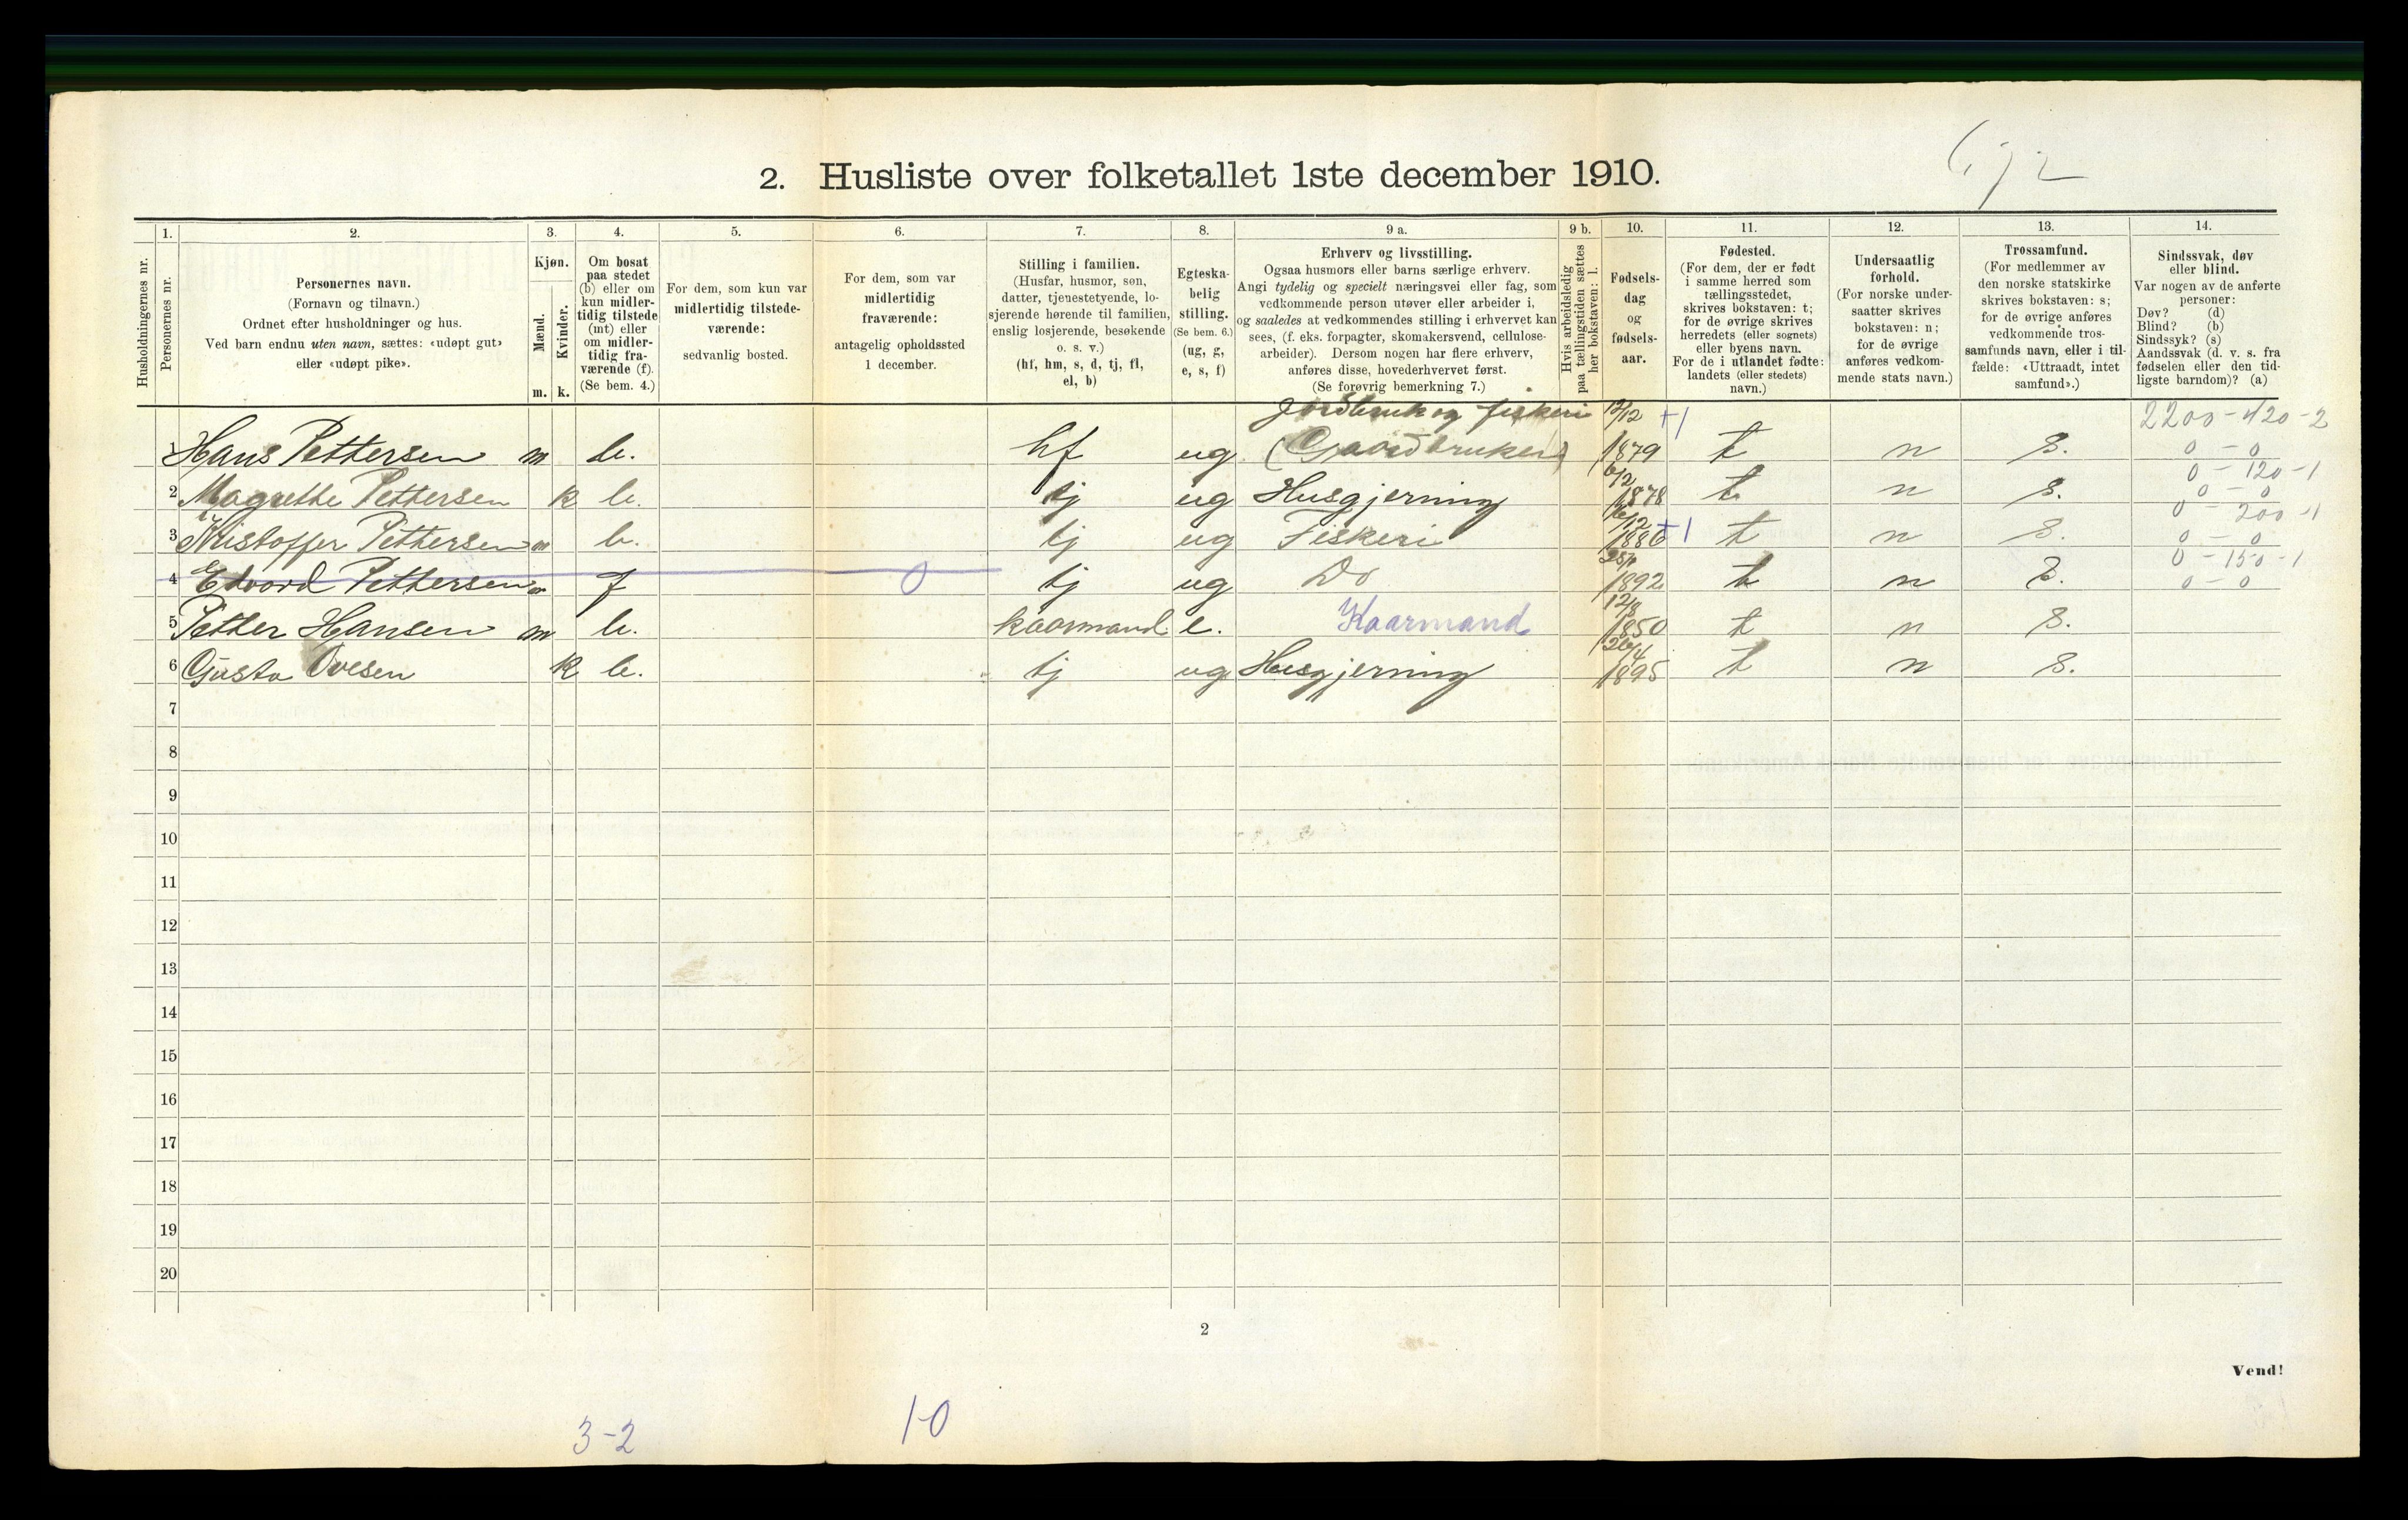 2. Husliste over folketallet 1ste december 1910.
1. 2. 3. 4. 5. 6. 7. 8. 9 a. 9 b. 10. 11. 12. 13. 14.
Husholdningernes nr.
Personernes nr.
Personernes navn.
(Fornavn og tilnavn.)
Ordnet efter husholdninger og hus.
Ved barn endnu uten navn, sættes: «udøpt gut»
eller «udøpt pike».
Kjøn.
Mænd.
Kvinder.
m. k.
Om bosat
paa stedet
(b) eller om
kun midler-
tidig tilstede
(mt) eller
om midler-
tidig fra-
værende (f).
(Se bem. 4.)
For dem, som kun var
midlertidig tilstede-
værende:
sedvanlig bosted.
For dem, som var
midlertidig
fraværende:
antagelig opholdssted
1 december.
Stilling i familien.
(Husfar, husmor, søn,
datter, tjenestetyende, lo-
sjerende hørende til familien,
enslig losjerende, besøkende
o. s. v.)
(hf, hm, s, d, tj, fl,
el, b)
Egteska-
belig
stilling.
(Se bem. 6.)
(ug, g,
e, s, f)
Erhverv og livsstilling.
Ogsaa husmors eller barns særlige erhverv.
Angi tydelig og specielt næringsvei eller fag, som
vedkommende person utøver eller arbeider i,
og saaledes at vedkommendes stilling i erhvervet kan
sees, (f. eks. forpagter, skomakersvend, cellulose-
arbeider). Dersom nogen har flere erhverv,
anføres disse, hovederhvervet først.
(Se forøvrig bemerkning 7.)
Hvis arbeidsledig
paa tællingstiden sættes
her bokstaven: l.
Fødsels-
dag
og
fødsels-
aar.
Fødested.
(For dem, der er født
i samme herred som
tællingsstedet,
skrives bokstaven: t;
for de øvrige skrives
herredets (eller sognets)
eller byens navn.
For de i utlandet fødte:
landets (eller stedets)
navn.)
Undersaatlig
forhold.
(For norske under-
saatter skrives
bokstaven: n;
for de øvrige
anføres vedkom-
mende stats navn.)
Trossamfund.
(For medlemmer av
den norske statskirke
skrives bokstaven: s;
for de øvrige anføres
vedkommende tros-
samfunds navn, eller i til-
fælde: «Uttraadt, intet
samfund».)
Sindssvak, døv
eller blind.
Var nogen av de anførte
personer:
Døv? (d)
Blind? (b)
Sindssyk? (s)
Aandssvak (d. v. s. fra
fødselen eller den tid-
ligste barndom)? (a)
Jordbruk og fiskeri 12/12 +1 2200-420-2
1 Hans Pettersen m b. hf ug (Gaardbruker) 1879 t n s. 0-0
0-120-1
2 Magrethe Pettersen k b. tj ug Husgjerning 1878 t n s. 0-0
0-200-1
3 Kristoffer Pettersen m b. tj ug Fiskeri +1 t n s. 0-0
0-150-1
4 Edvard Pettersen m f 0 tj ug Do 1892 t n s. 0-0
12/8
5 Petter Hansen m b. kaarmand e. Kaarmand 1850 t n s.
6 Gusta Ovesen k b. tj ug Husgjerning 1895 t n s.
7
8
9
10
11
12
13
14
15
16
17
18
19
20
2
Vend!
3-2 1-0